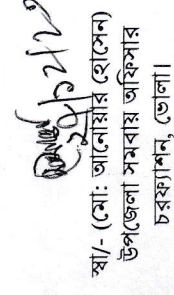 স্বা/- (মো: আনোয়ার হোসেন)
উপজেলা সমবায় অফিসার
চরফ্যাশন, ভোলা।